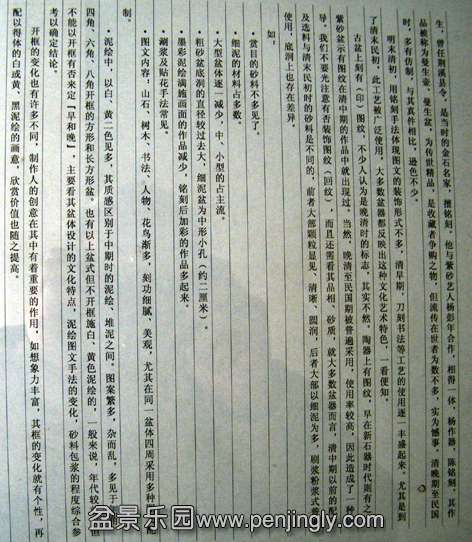 生，曾任荆溪县令，是当时的金石名家，擅铭刻，他与紫砂艺人杨彭年合作，相得一体，杨作器，陈铭刻，其作
品被称为曼生壶，曼生盆，为传世精品，是收藏者争购之物，但流传在世者为数不多，实为憾事，清晚期至民国
时，多有仿制，与其真件相比，逊色不少。
明末清初，用铭刻手法体现图文的装饰形式不多，清早期，刀刻书法等工艺的使用逐一丰盛起来。尤其是到
了清末民初，此工艺被广泛使用，大多数盆器都反映出这种文化艺术特色，一看便知。
古盆上刻有（印）图纹，不少人认为是晚清时的标志，其实不然，陶器上有图纹，早在新石器时代则有之，
紫砂盆示有图纹在清中期的作品中就出现过。当然，晚清至民国期被普遍采用，使用率较高，因此造成了一种
导。我们不要光注意有否装饰图纹（回纹），而且还需看其品相、砂质，就大多数盆器而言，清中期以前的配
及选料与清末民初时的砂料是不同的，前者大部颗粒显见、清晰、圆润，后者大部以细泥为多，刷浆粉浆式普
使用，底洞上也存在差异
如：
·赏目的砂料不多见了。
·细泥的材料占多数。
·大型盆体逐一减少，中、小型的占主流。
·粗砂盆底洞的直径较过去大，细泥盆为中形小孔（约二厘米）。
·墨彩泥绘满施画面的作品减少，铭刻后加彩的作品多起来。
·涮浆及贴花手法常见。
·图文内容：山石、树木、书法、人物、花鸟渐多，刻功细腻、美观，尤其在同一盆体四周采用多种
制。
·泥绘中，以白、黄二色见多，其质感区别于中期时的泥绘、堆泥之间，图案繁多，杂而乱，多见于
四角、六角、八角开框的方形和长方形盆。也有以上盆式但不开框施白、黄色泥绘的，一般来说，年代较
不能以开框有否来定『早和晚』，主要看其盆体设计的文化特点，泥绘图文手法的变化，砂料包浆的程度综合参
考以确定结论。
开框的变化也有许多不同，制作人的创意在其中有着重要的作用，如想象力丰富，其框的变化就有个性，再
配以得体的白或黄、黑泥绘的画意，欣赏价值也随之提高。
盆景乐园www.penjingly.com